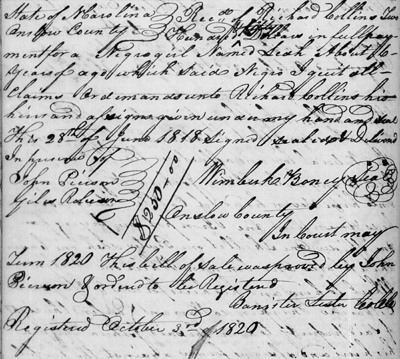 State of N Carolina Recd of Richard Collins Two
Onslow County Hundred & fifty Dollars in full pay-
ment for a Negro girl Named Leah About
years of age which Said Negro I quit all
Claims or demands unto Richard Collins his
heirs and assigns given under my hand and Seal
This 28th of June 1818 Signed Sealed & Deliverd
In presents of
John Pierson
Giles Roberson
$250.00
Seal
Onslow County
In Court may
Turm 1820 This bill of Sale was proved by John
Pierson & orderd to be Registerd
Banister Lester
Registered October 3rd 1820